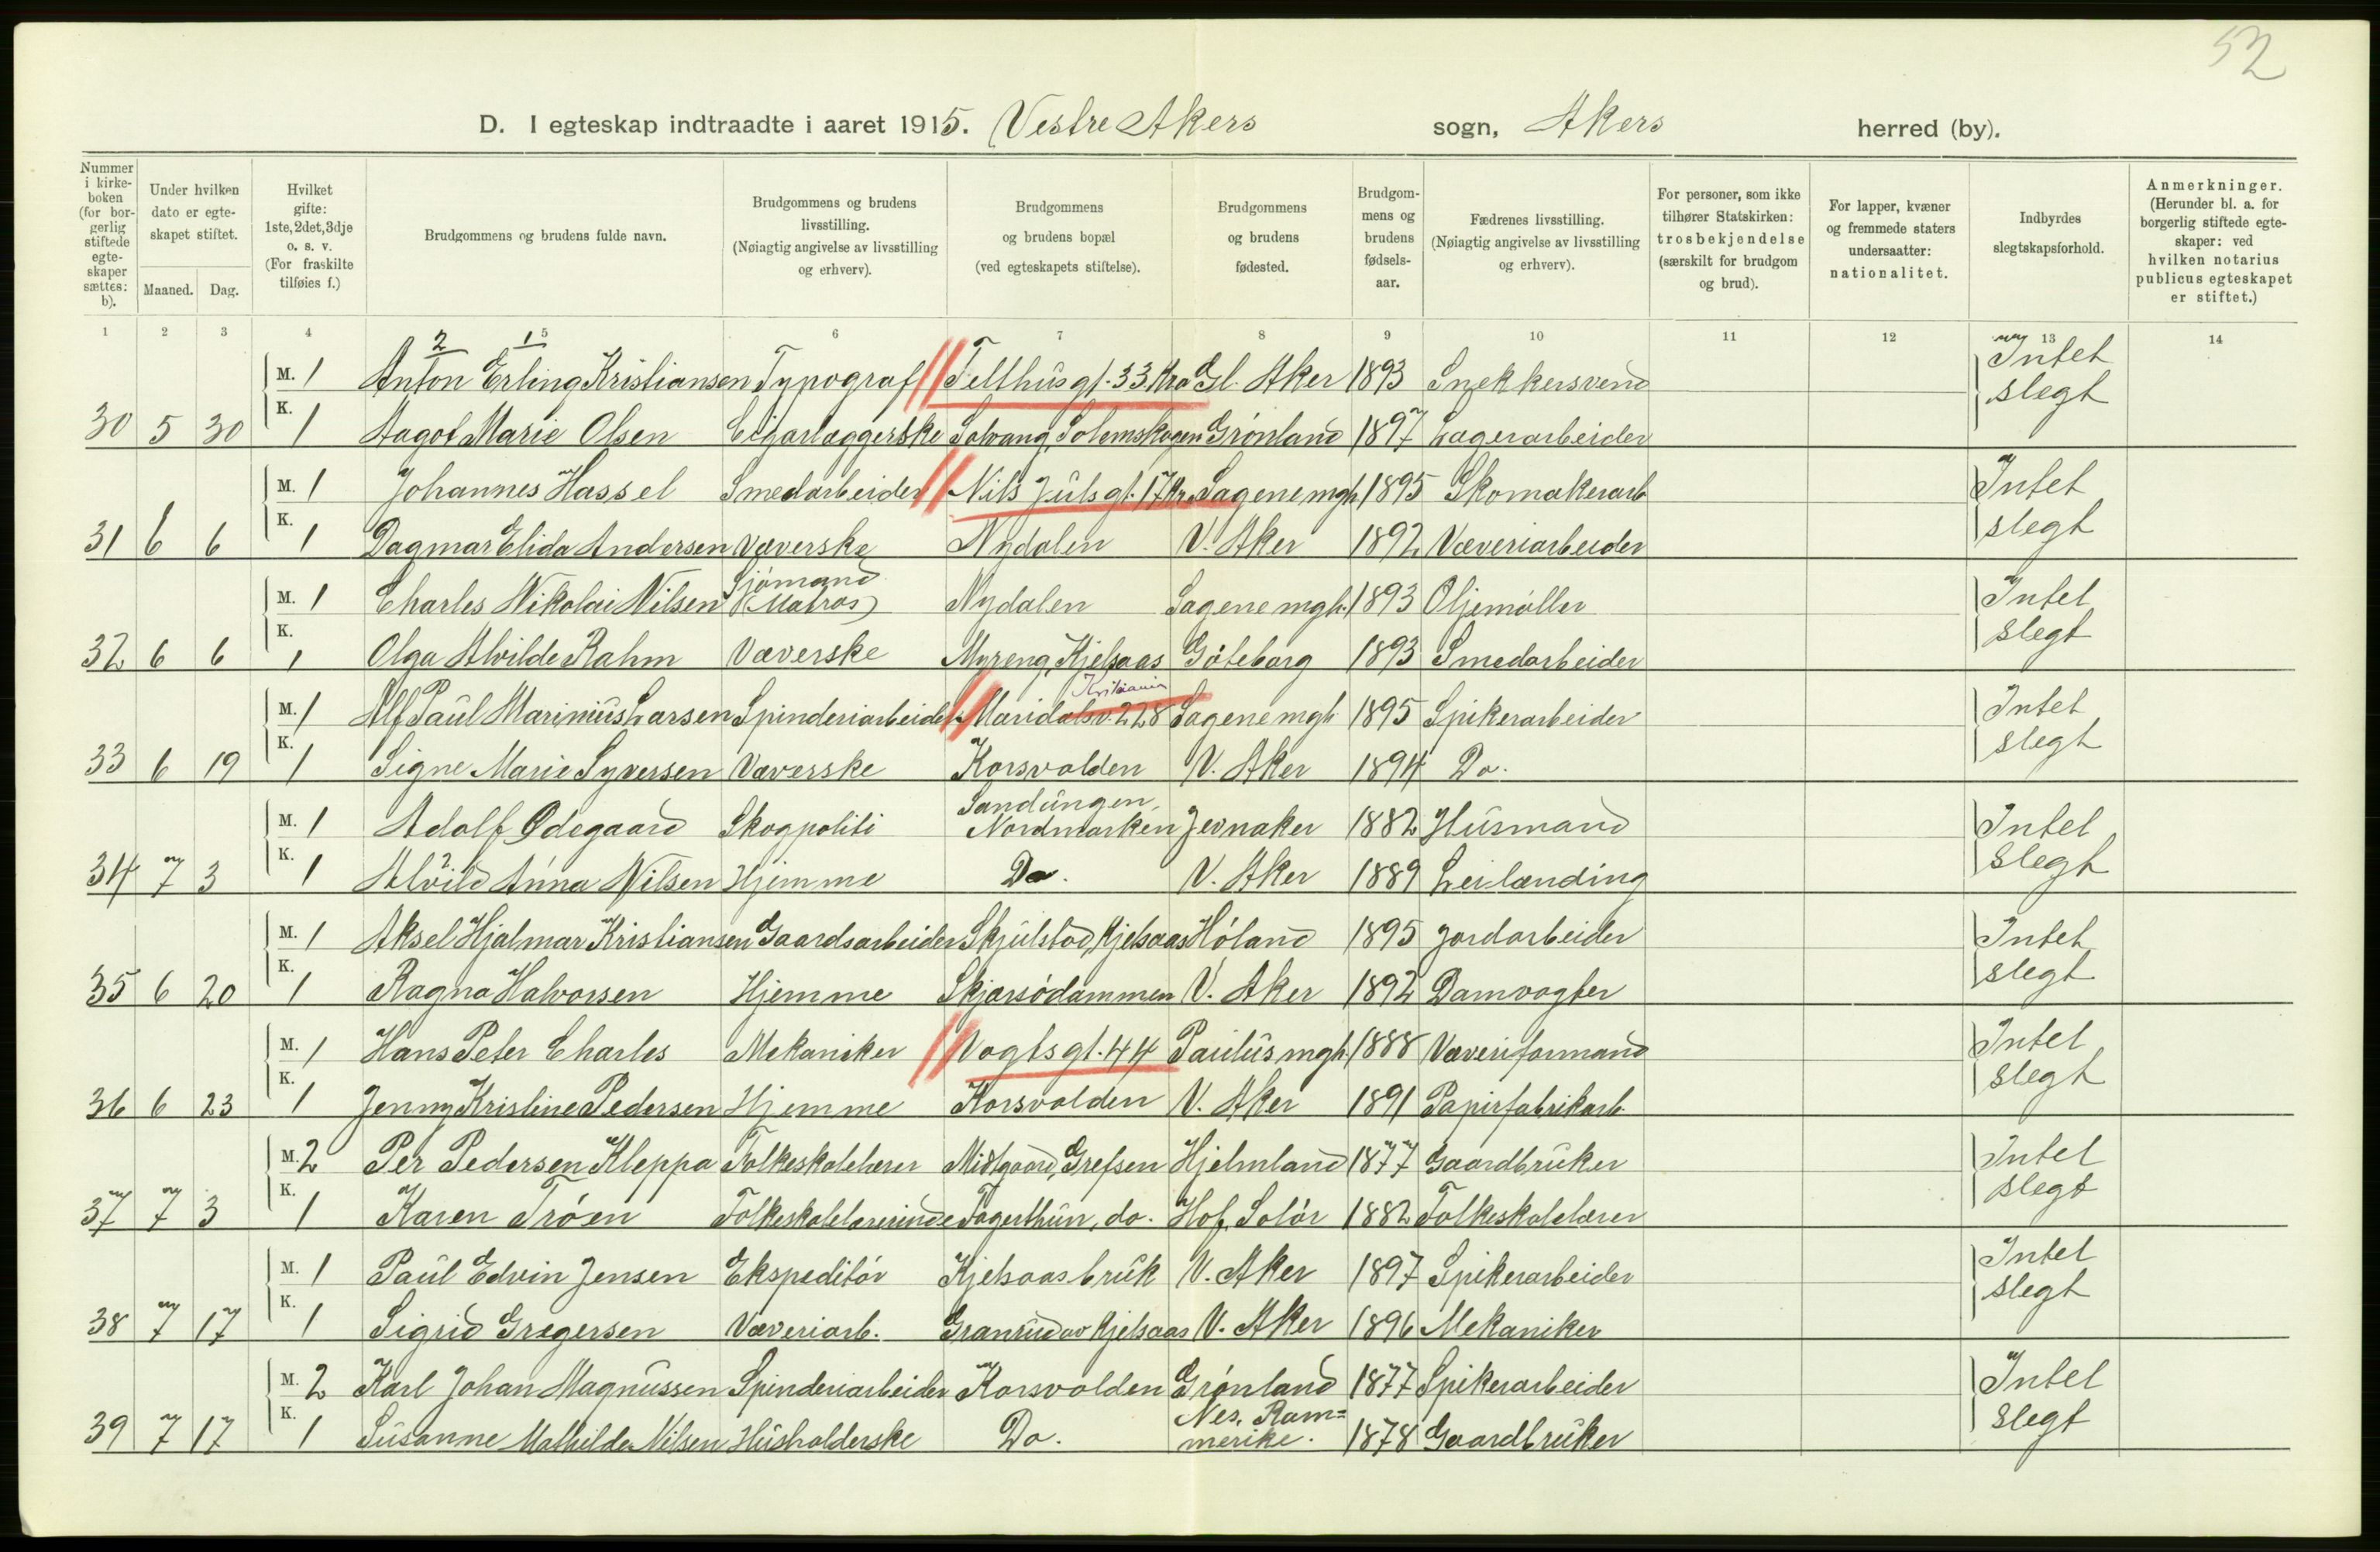 52
D. I egteskap indtraadte i aaret 1915. Vestre Akers sogn, Akers herred (by).
Nummer i kirkeboken (for borgerlig stiftede egteskaper sættes: b). | Under hvilken dato er egteskapet stiftet. Maaned. Dag. | Hvilket gifte: 1ste, 2det, 3dje o. s. v. (For fraskilte tilføies f.) | Brudgommens og brudens fulde navn. | Brudgommens og brudens livsstilling. (Nøiagtig angivelse av livsstilling og erhverv). | Brudgommens og brudens bopæl (ved egteskapets stiftelse). | Brudgommens og brudens fødested. | Brudgommens og brudens fødselsaar. | Fædrenes livsstilling. (Nøiagtig angivelse av livsstilling og erhverv). | For personer, som ikke tilhører Statskirken: trosbekjendelse (særskilt for brudgom og brud). | For lapper, kvæner og fremmede staters undersaatter: nationalitet. | Indbyrdes slegtskapsforhold. | Anmerkninger. (Herunder bl. a. for borgerlig stiftede egteskaper: ved hvilken notarius publicus egteskapet er stiftet.)
1 2 3 4 5 6 7 8 9 10 11 12 13 14
2 1
M. 1 Anton Erling Kristiansen Typograf Telthusgt. 33. Kra Gl. Aker 1893 Snekkersvend Intet
30 5 30 K. 1 Aagot Marie Olsen Cigarlæggerske Solvang, Solemskogen Grönland 1897 Lagerarbeider slegt
M. 1 Johannes Hassel Smedarbeider Nils Juls gt. 17 Kr. Sagene mgh. 1895 Skomakerarb Intet
31 6 6 K. 1 Dagmar Elida Andersen Væverske Nydalen V. Aker 1892 Væveriarbeider slegt
M. 1 Charles Nikolai Nilsen Sjömand (Matros) Nydalen Sagene mgh. 1893 Oljemöller Intet
32 6 6 K. 1 Olga Alvilde Rahm Væverske Myreng, Kjelsaas Göteborg 1893 Smedarbeider slegt
Kristiania
M. 1 Alf Paul Marinius Larsen Spinderiarbeider Maridalsv. 228 Sagene mgh 1895 Spikerarbeider Intet
33 6 19 K. 1 Signe Marie Syversen Væverske Korsvolden V. Aker 1894 Do. slegt
M. 1 Adolf Ödegaard Skogpoliti Sandungen, Nordmarken Jevnaker 1882 Husmand Intet
34 7 3 K. 1 Alvild Anna Nilsen Hjemme Do. V. Aker 1889 Leilænding slegt
M. 1 Aksel Hjalmar Kristiansen Gaardsarbeider Skjulstad, Kjelsaas Höland 1895 Jordarbeider Intet
35 6 20 K. 1 Ragna Halvorsen Hjemme Skjærsödammen V. Aker 1892 Damvogter slegt
M. 1 Hans Peter Charles Mekaniker Vogts gt. 44 Paulus mgh. 1888 Væveriformand Intet
36 6 23 K. 1 Jenny Kristine Pedersen Hjemme Korsvolden V. Aker 1891 Papirfabrikarb. slegt
M. 2 Per Pedersen Kleppa Folkeskolelærer Midtgaard, Grefsen Hjelmland 1877 Gaardbruker Intet
37 7 3 K. 1 Karen Tröen Folkeskolelærerinde Fagerthun, do. Hof, Solör 1882 Folkeskolelærer slegt
M. 1 Paul Edvin Jensen Ekspeditör Kjelsaas bruk V. Aker 1897 Spikerarbeider Intet
38 7 17 K. 1 Sigrid Gregersen Væveriarb. Granrud av Kjelsaas V. Aker 1896 Mekaniker slegt
M. 2 Karl Johan Magnussen Spinderiarbeider Korsvolden Grönland 1877 Spikerarbeider Intet
39 7 17 K. 1 Susanne Mathilde Nilsen Husholderske Do. Nes, Rom=merike. 1878 Gaardbruker slegt